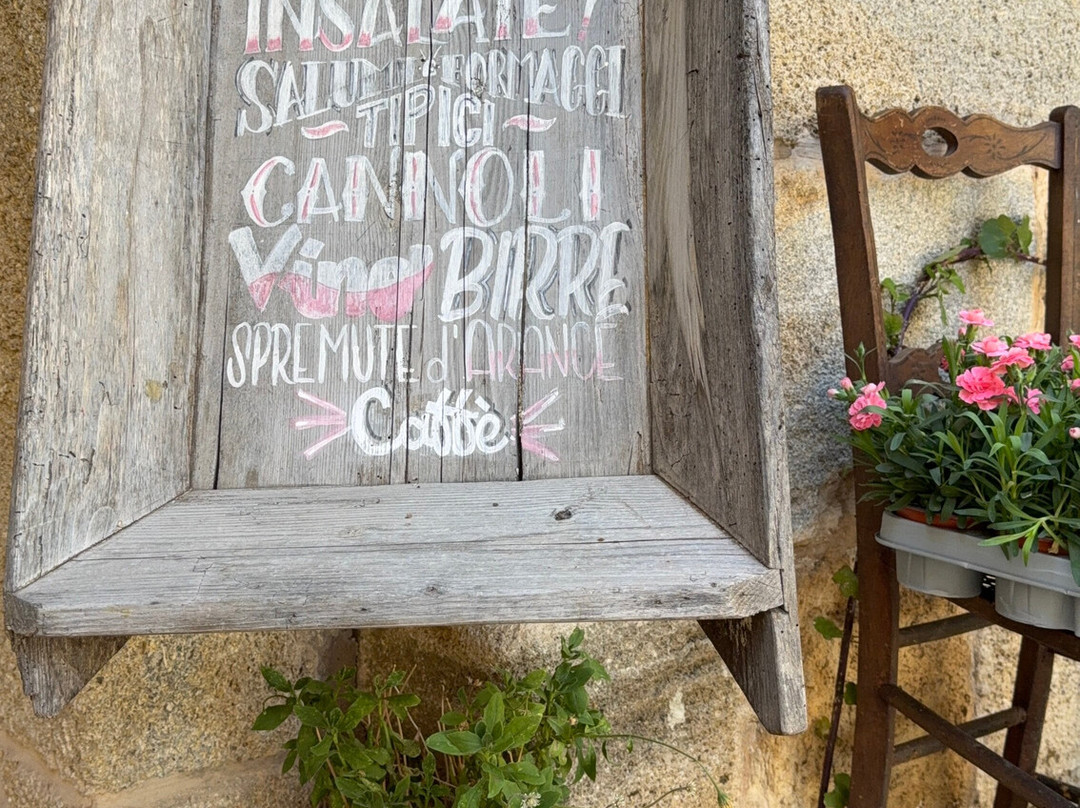 INSALATE!
SALUMI e FORMAGGI
TIPICI
CANNOLI
Vino BIRRE
SPREMUTE d'ARANCE
Caffè